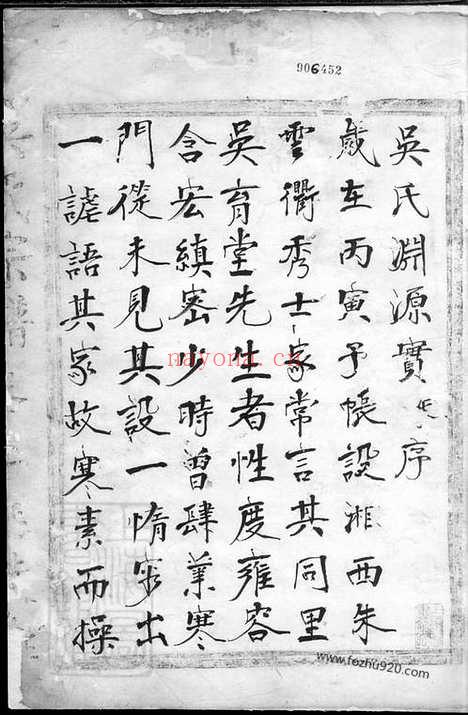 906452
吳氏淵源實序
歲在丙寅予帳設湘西朱
雲衢秀士家常言其同里
吳育堂先生者性度雍容
含宏縝密少時曾肆業寒
門從未見其設一惰容出
一謔語其家故寒素而操
nayona.cn
www.fozhu920.com